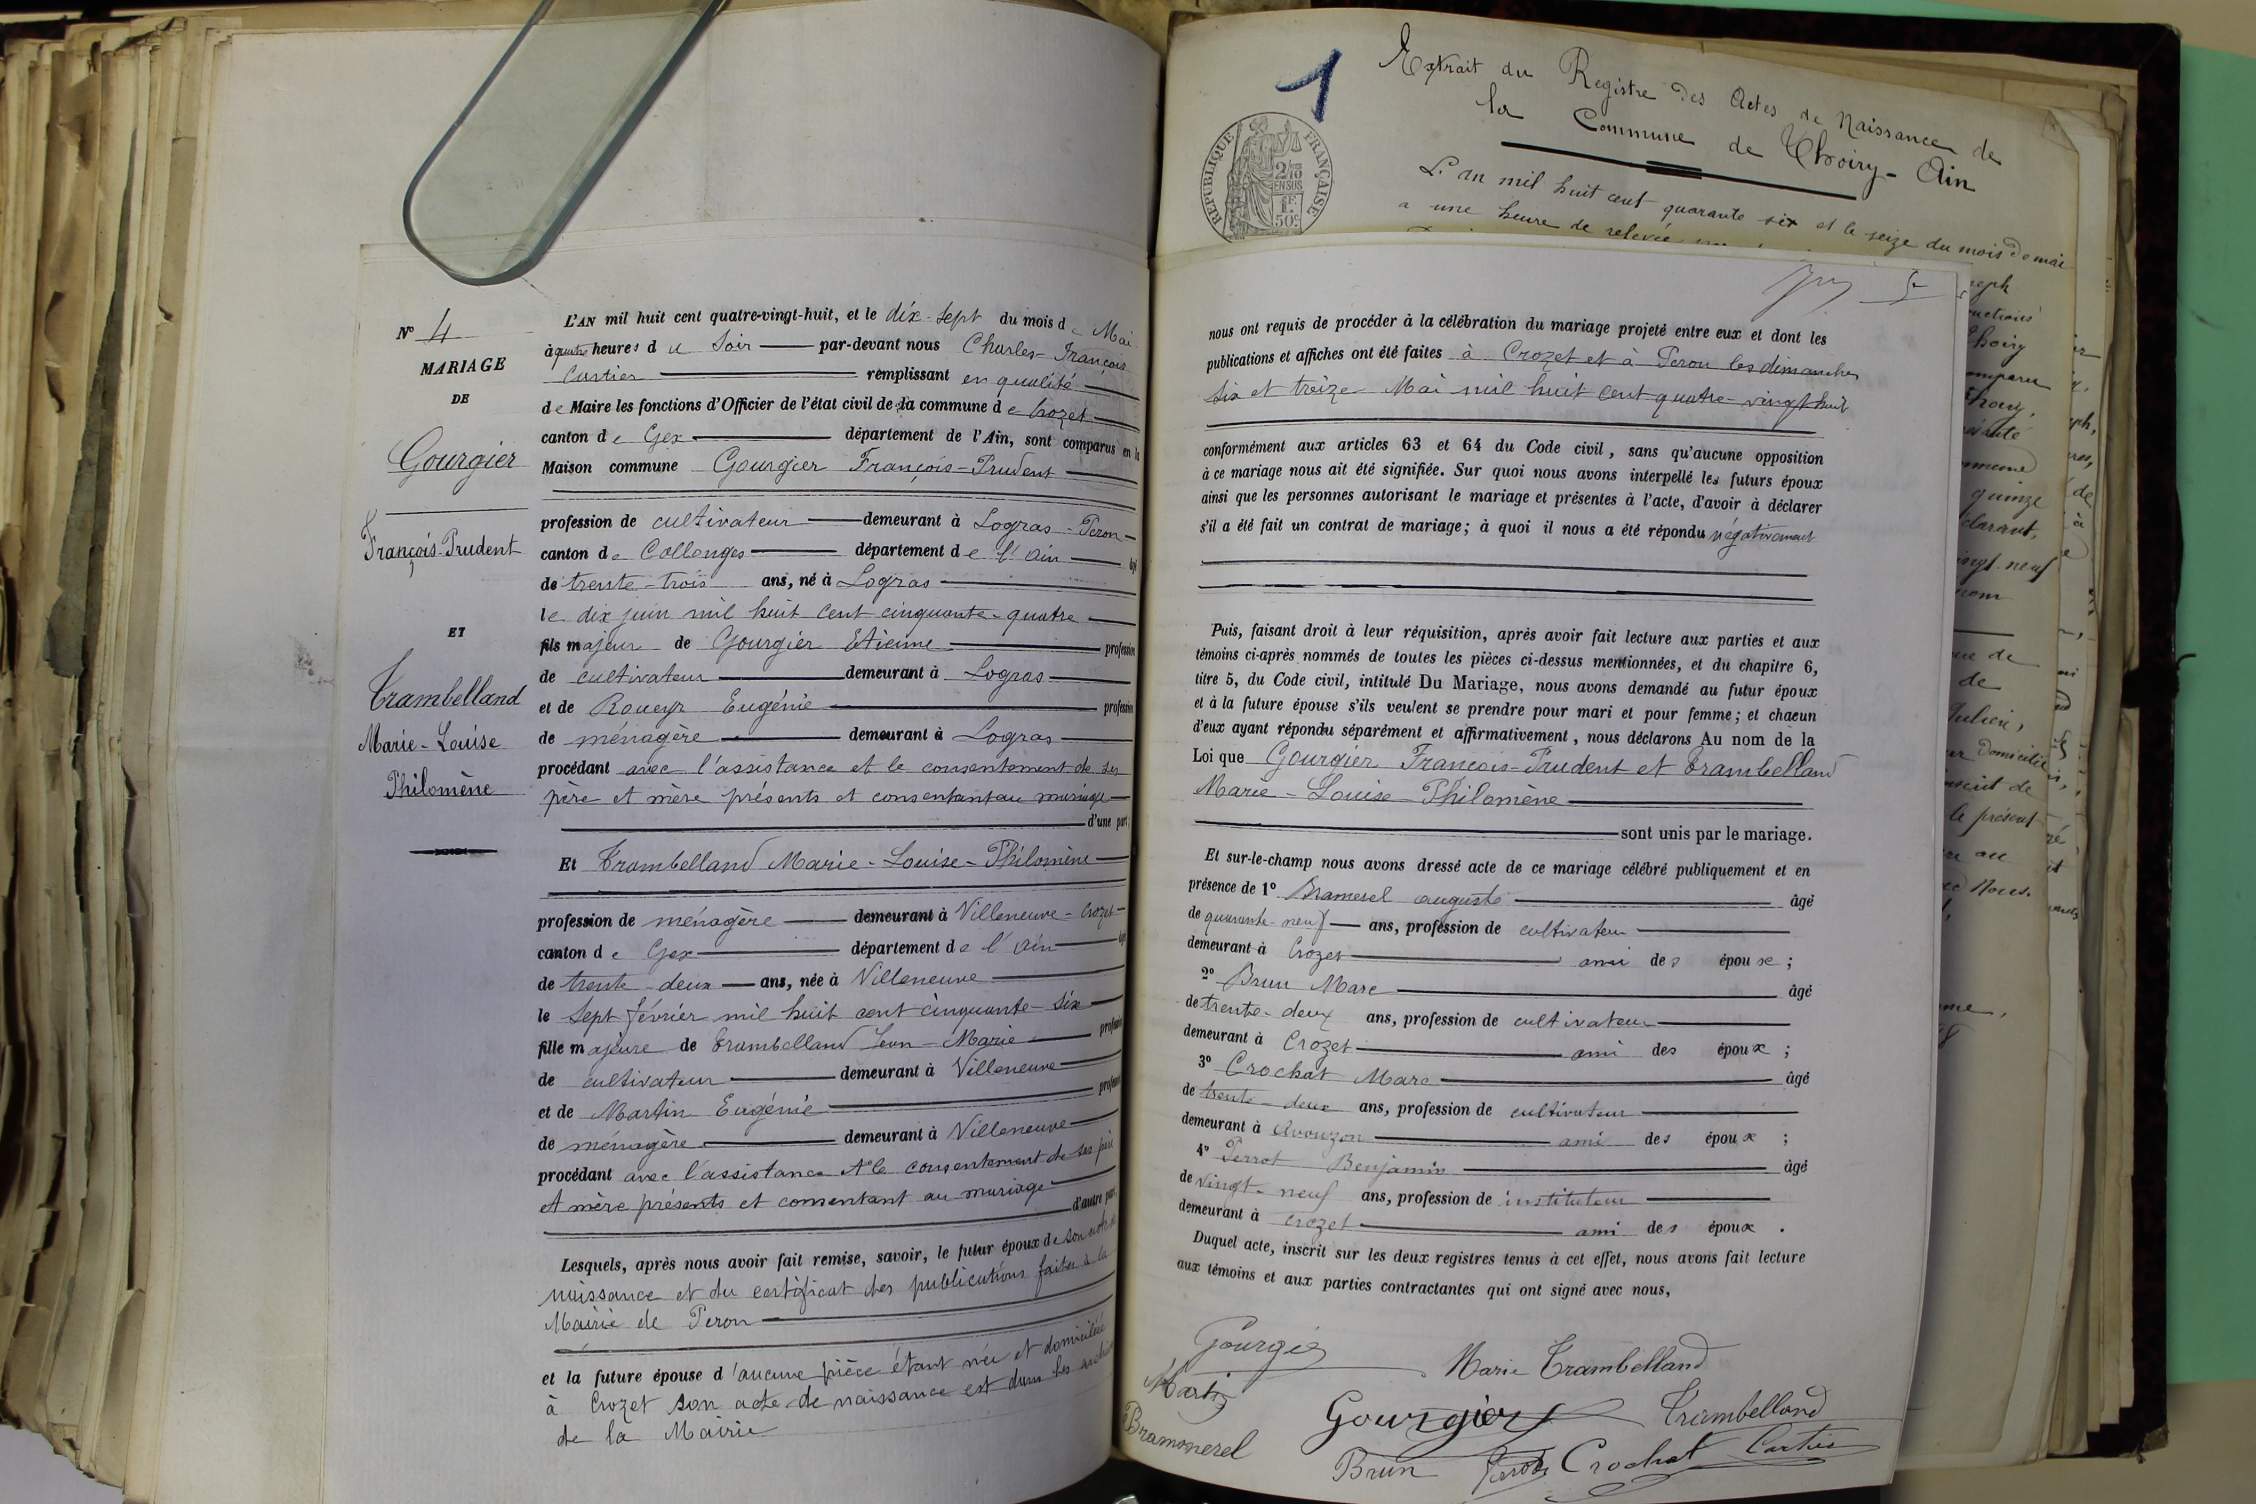 N° 4
MARIAGE
DE
Gourgier
François-Prudent
ET
Trambelland
Marie-Louise
Philomène
L'AN mil huit cent quatre-vingt-huit, et le dix-sept du mois de Mai
à quatre heures du Soir par-devant nous Charles-François
Cartier remplissant en qualité
de Maire les fonctions d'Officier de l'état civil de la commune de Crozet
canton de Gex département de l'Ain, sont comparus en la
Maison commune Gourgier François-Prudent
profession de cultivateur demeurant à Logras-Peron
canton de Collonges département de l'Ain âgé
de trente-trois ans, né à Logras
le dix juin mil huit cent cinquante-quatre
fils majeur de Gourgier Etienne profession
de cultivateur demeurant à Logras
et de Roueyr Eugénie profession
de ménagère demeurant à Logras
procédant avec l'assistance et le consentement de ses
père et mère présents et consentant au mariage
d'une part,
Et Trambelland Marie-Louise-Philomène
profession de ménagère demeurant à Villeneuve-Crozet
canton de Gex département de l'Ain âgée
de trente-deux ans, née à Villeneuve
le sept février mil huit cent cinquante-six
fille majeure de Trambelland Jean-Marie profession
de cultivateur demeurant à Villeneuve
et de Martin Eugénie profession
de ménagère demeurant à Villeneuve
procédant avec l'assistance et le consentement de ses père
et mère présents et consentant au mariage
d'autre part,
Lesquels, après nous avoir fait remise, savoir, le futur époux de son acte de
naissance et du certificat des publications faites à la
Mairie de Peron
et la future épouse d'aucune pièce étant née et domiciliée
à Crozet son acte de naissance est dans les archives
de la Mairie
1
Extrait du Registre des Actes de Naissance de
la Commune de Thoiry-Ain
RÉPUBLIQUE FRANÇAISE
2/10
EN SUS
1F.
50c.
L'an mil huit cent quarante six et le seize du mois de mai
a une heure de relevée
nous ont requis de procéder à la célébration du mariage projeté entre eux et dont les
publications et affiches ont été faites à Crozet et à Peron les dimanches
six et treize Mai mil huit cent quatre-vingt huit
conformément aux articles 63 et 64 du Code civil, sans qu'aucune opposition
à ce mariage nous ait été signifiée. Sur quoi nous avons interpellé les futurs époux
ainsi que les personnes autorisant le mariage et présentes à l'acte, d'avoir à déclarer
s'il a été fait un contrat de mariage; à quoi il nous a été répondu négativement
Puis, faisant droit à leur réquisition, après avoir fait lecture aux parties et aux
témoins ci-après nommés de toutes les pièces ci-dessus mentionnées, et du chapitre 6,
titre 5, du Code civil, intitulé Du Mariage, nous avons demandé au futur époux
et à la future épouse s'ils veulent se prendre pour mari et pour femme; et chacun
d'eux ayant répondu séparément et affirmativement, nous déclarons Au nom de la
Loi que Gourgier François-Prudent et Trambelland
Marie-Louise-Philomène
sont unis par le mariage.
Et sur-le-champ nous avons dressé acte de ce mariage célébré publiquement et en
présence de 1° Bramerel auguste âgé
de quarante-neuf ans, profession de cultivateur
demeurant à Crozet ami des époux;
2° Brun Marc âgé
de trente-deux ans, profession de cultivateur
demeurant à Crozet ami des époux;
3° Crochat Marc âgé
de trente-deux ans, profession de cultivateur
demeurant à Avouzon ami des époux;
4° Perrot Benjamin âgé
de vingt-neuf ans, profession de instituteur
demeurant à Crozet ami des époux.
Duquel acte, inscrit sur les deux registres tenus à cet effet, nous avons fait lecture
aux témoins et aux parties contractantes qui ont signé avec nous,
Gourgier
Marie Trambelland
Martin
Gourgier Trambelland
Bramerel
Brun Perrot Crochat Cartier